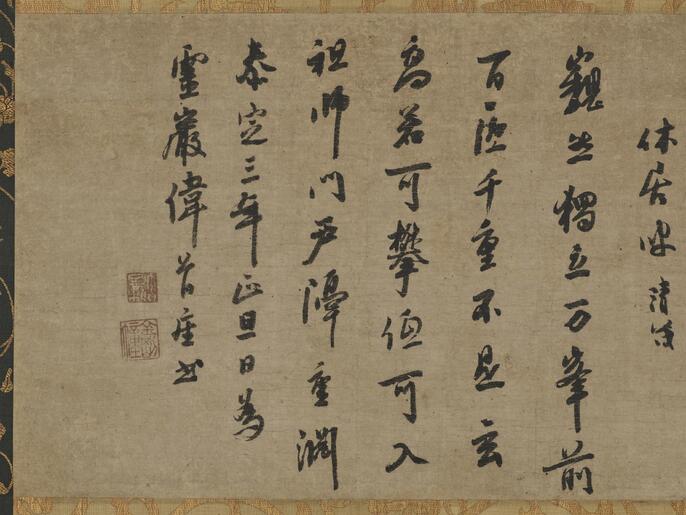 休居叟 清茂
巍然獨立万峯前
百匝千重不是玄
高若可攀低可入
祖師門戶隔重淵
泰定三年正旦日為
靈巖偉首座書